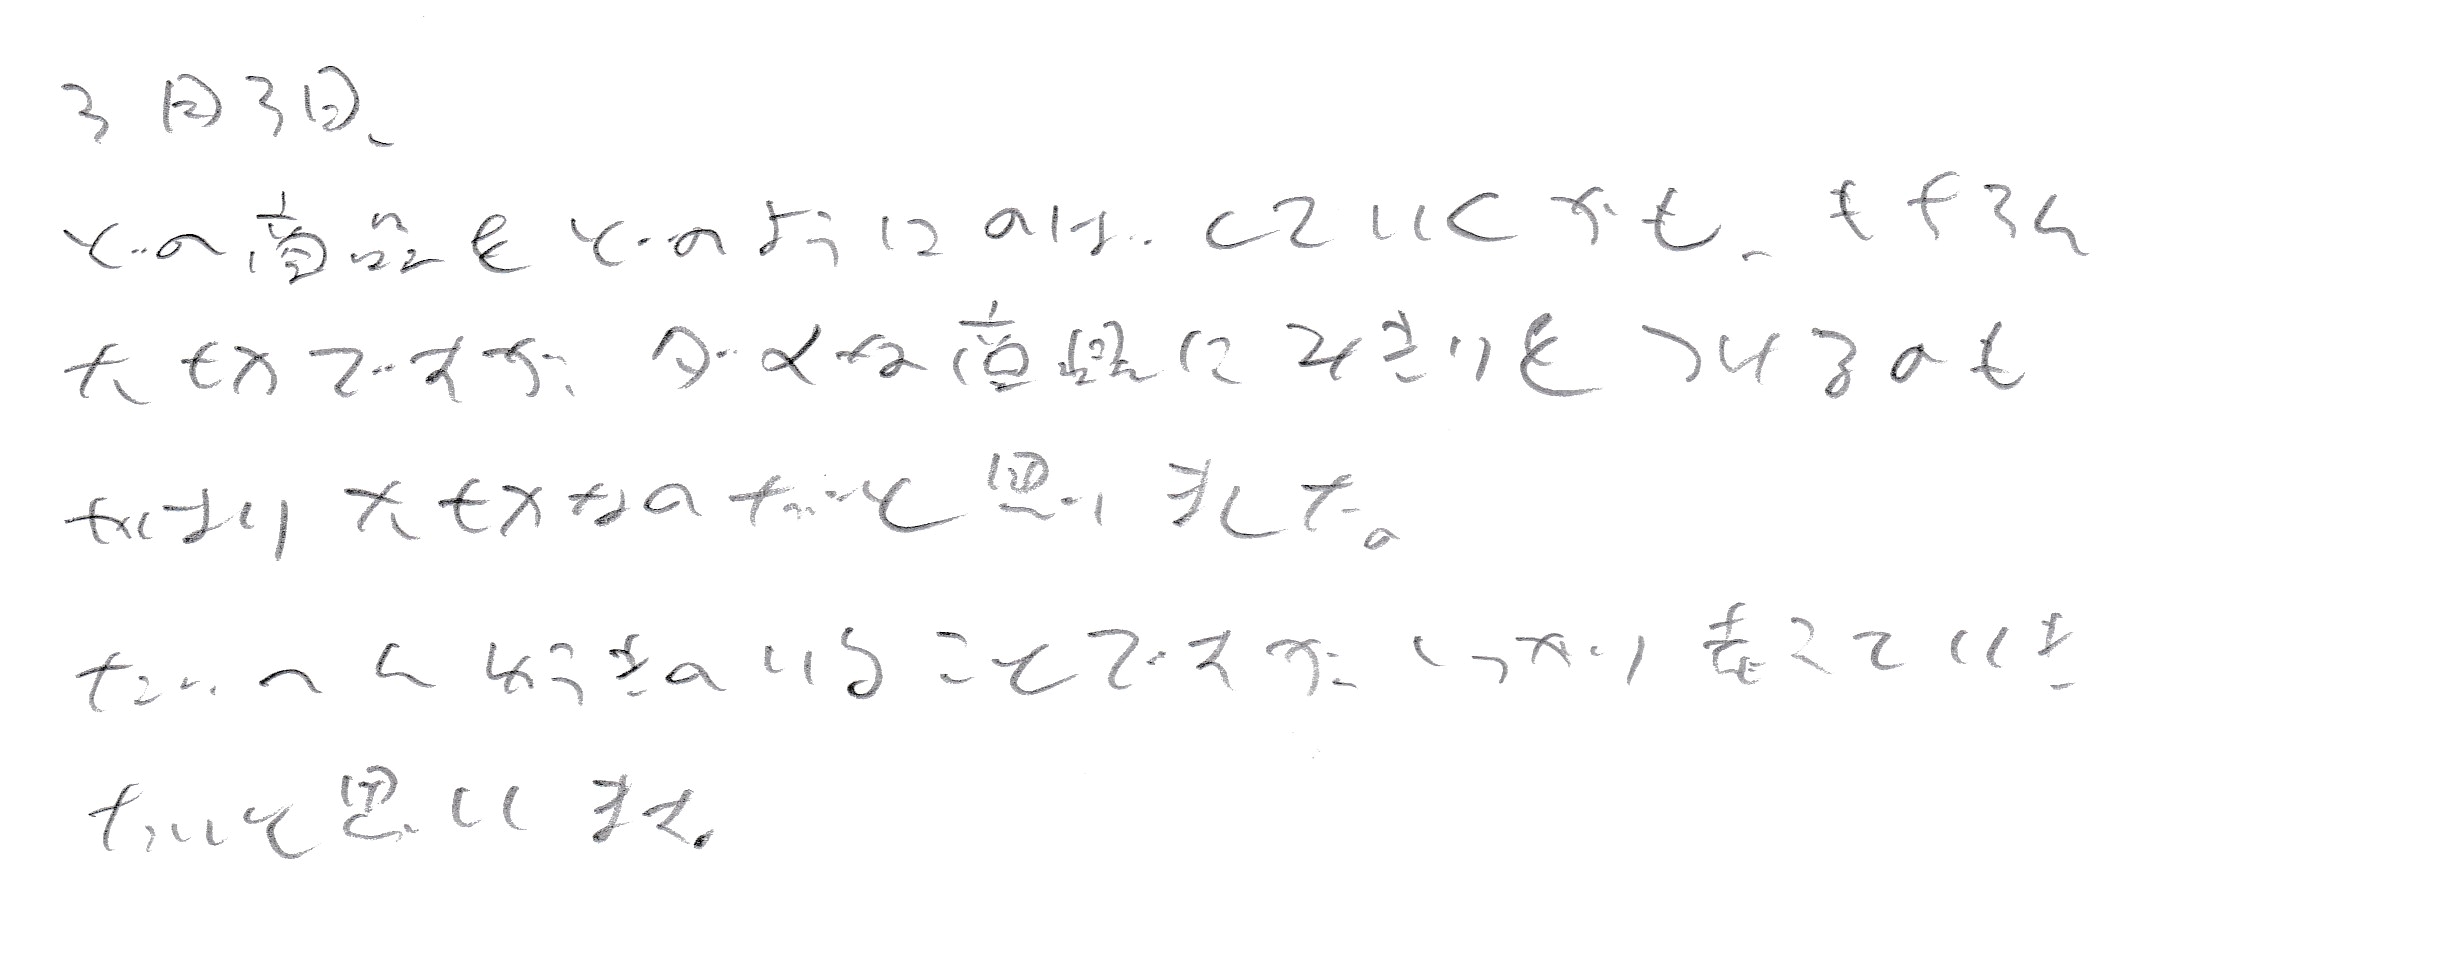 3月3日、
どの商品をどのようにのばしていくかも、もちろん
大切ですが、ダメな商品に見きりをつけるのも
やはり大切なのだと思いました。
たいへん勇きのいることですが、しっかり考えていき
たいと思います。